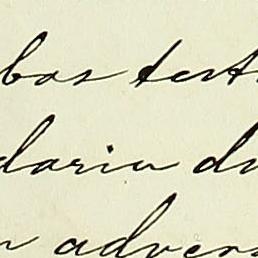 bos test
daria du
n advers